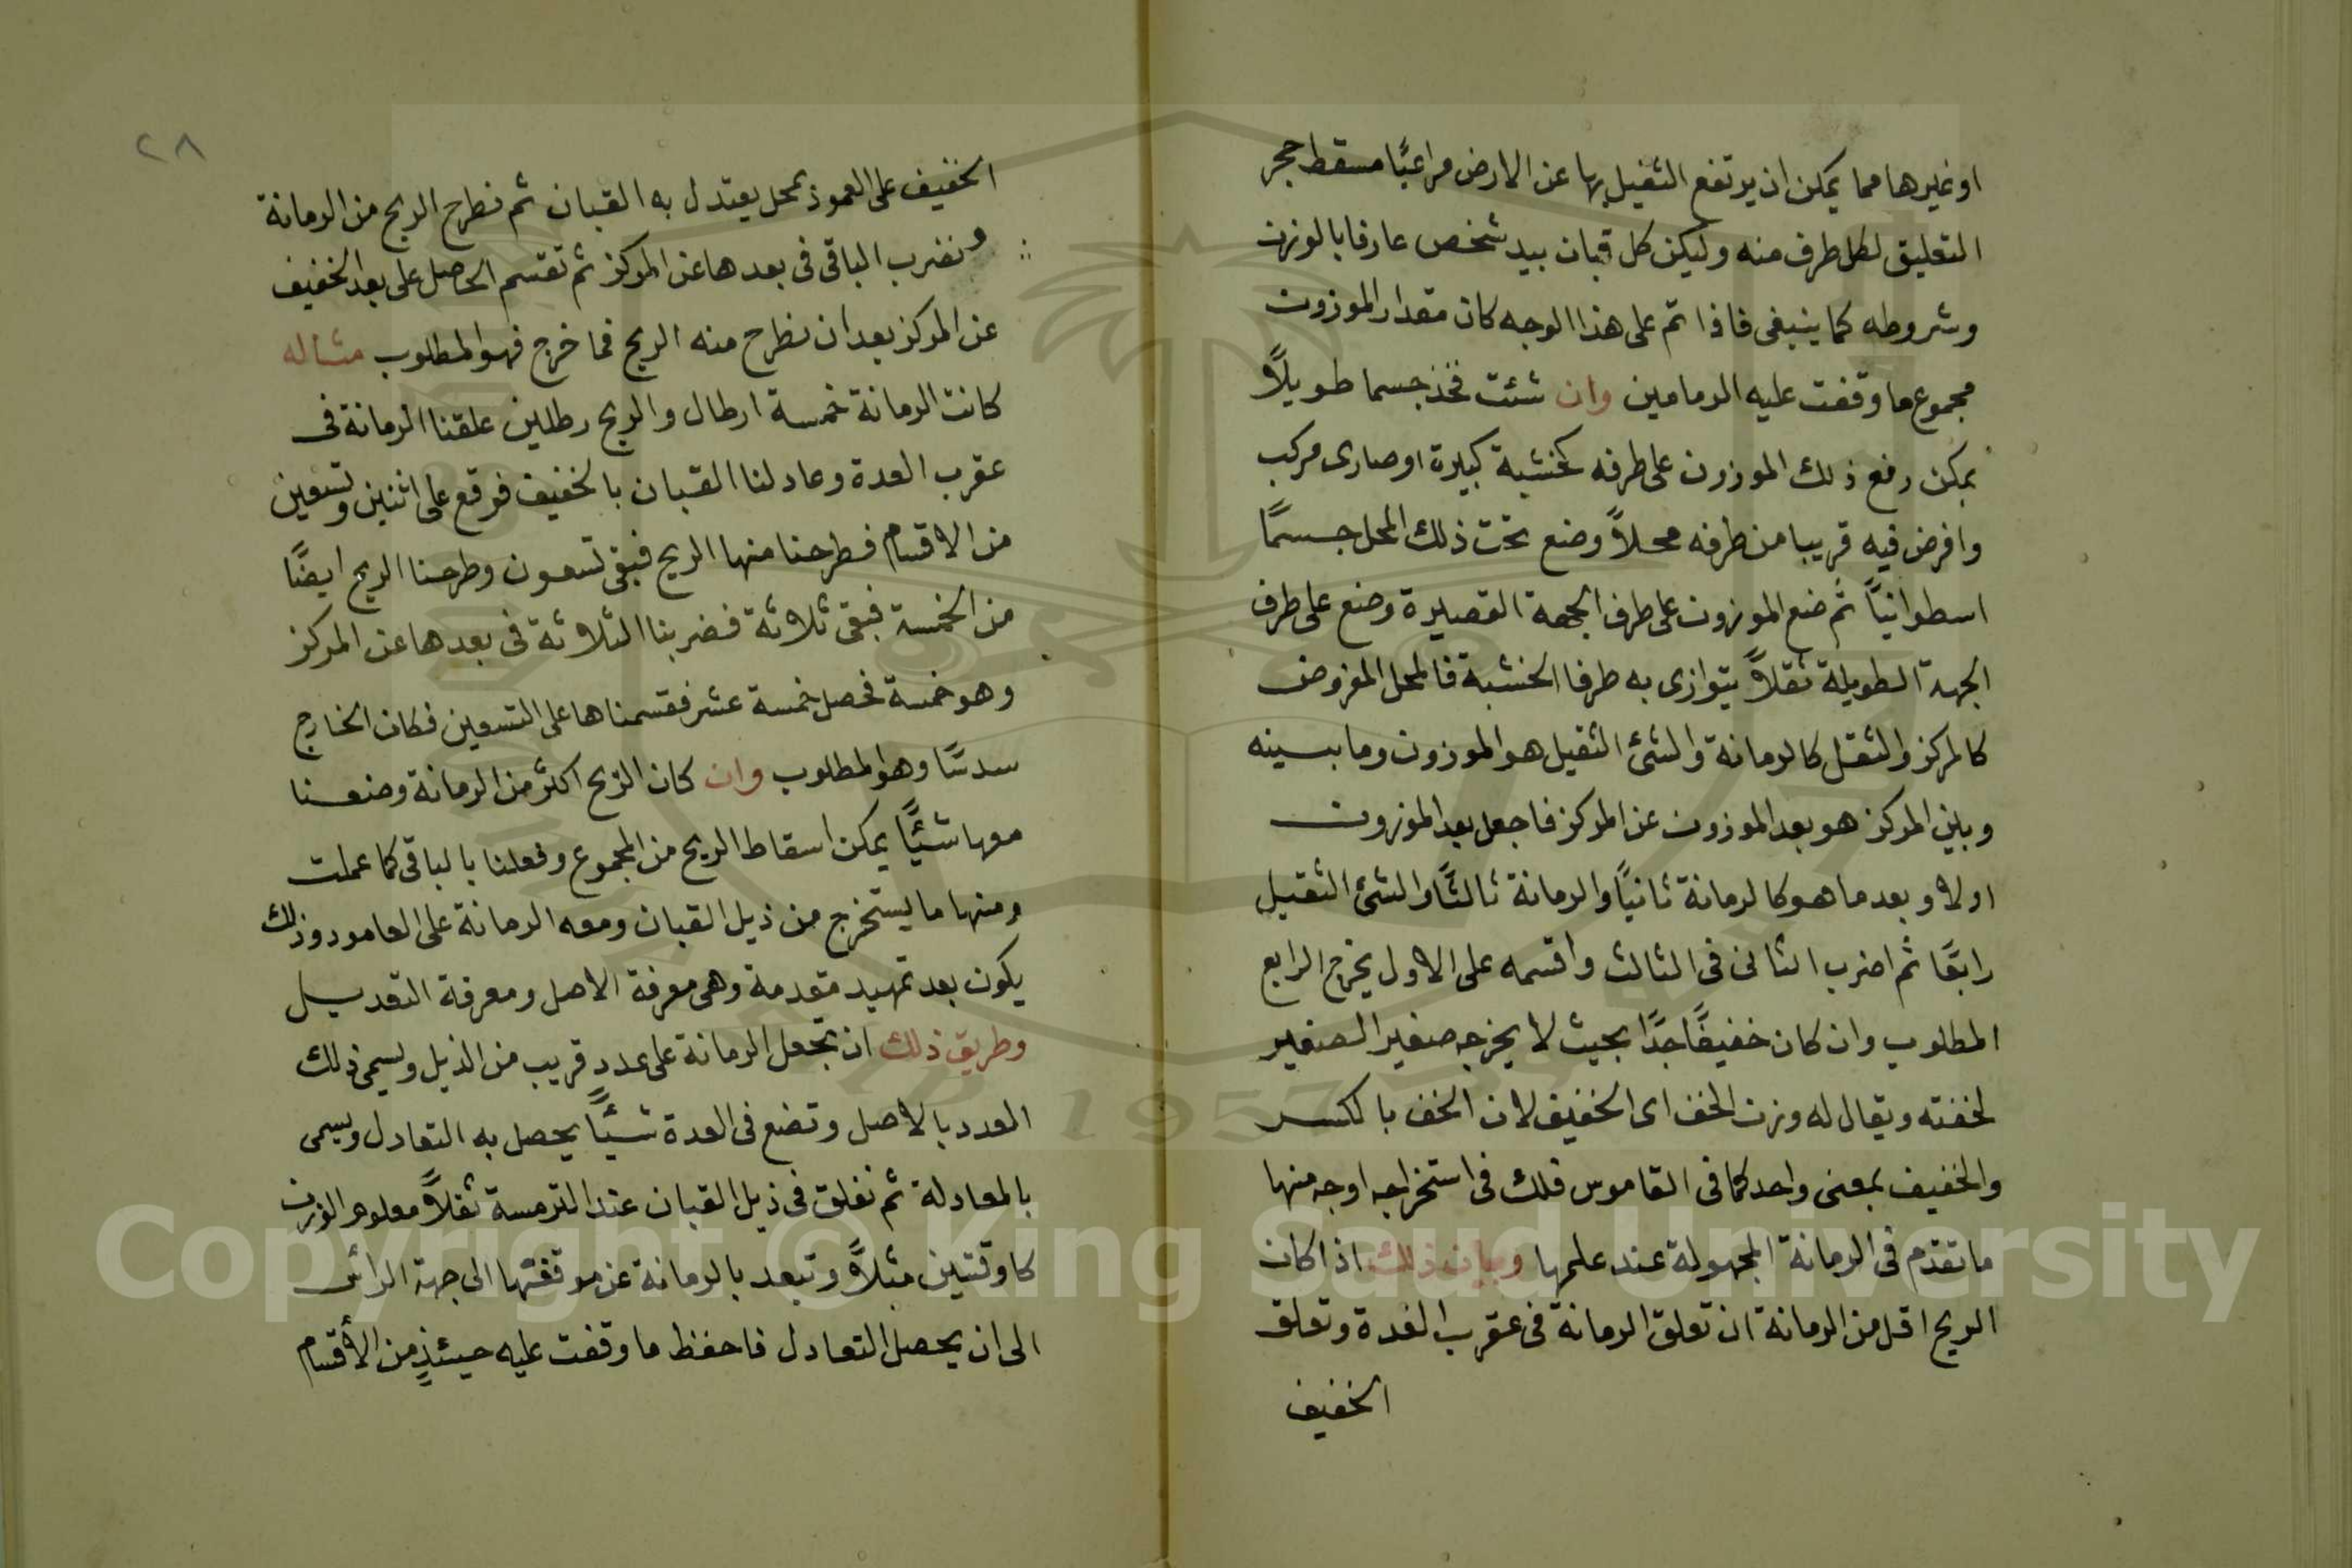 او غيرها مما يمكن ان يرتفع الثقيل بها عن الارض مراعيًا مسقط حجر
التعليق لكل طرف منه وليكن كل قبان بيد شخص عارفا بالوزن
وشروطه كما ينبغى فاذا تم على هذا الوجه كان مقدار الموزون
مجموع ما وقفت عليه الرمامين وان شئت فخذ جسما طويلاً
يمكن رفع ذلك الموزون على طرفه كخشبة كبيرة او صارى مركب
وافرض فيه قريبا من طرفه محلاً وضع تحت ذلك المحل جسمًا
اسطوانيًا ثم ضع الموزون على طرف الجهة القصيرة وضع على طرف
الجهة الطويلة ثقلاً يتوازى به طرفا الخشبة فالمحل المفروض
كالمركز والثقل كالرمانة والشئ الثقيل هو الموزون وما بينه
وبين المركز هو بعد الموزون عن المركز فاجعل بعد الموزون
اولا وبعد ما هو كالرمانة ثانيًا والرمانة ثالثًا والشئ الثقيل
رابعًا ثم اضرب الثانى فى الثالث واقسمه على الاول يخرج الرابع
المطلوب وان كان خفيفًا جدًا بحيث لا يخرجه صغير الصغير
لخفته ويقال له وزن الخف اى الخفيف لان الخف بالكسر
والخفيف بمعنى واحد كما فى القاموس فلك فى استخراجه اوجه منها
ما تقدم فى الرمانة المجهولة عند علمها وبيان ذلك اذا كان
الريح اقل من الرمانة ان تعلق الرمانة فى عقرب العدة وتعلق
الخفيف
٢٨
الخفيف على العمود بمحل يعتدل به القبان ثم نطرح الريح من الرمانة
ونضرب الباقى فى بعدها عن المركز ثم تقسم الحاصل على بعد الخفيف
عن المركز بعد ان نطرح منه الريح فما خرج فهو المطلوب مثاله
كانت الرمانة خمسة ارطال والريح رطلين علقنا الرمانة فى
عقرب العدة وعادلنا القبان بالخفيف فوقع على اثنين وتسعين
من الاقسام فطرحنا منها الريح فبقى تسعون وطرحنا الريح ايضًا
من الخمسة فبقى ثلاثة فضربنا الثلاثة فى بعدها عن المركز
وهو خمسة فحصل خمسة عشر فقسمناها على التسعين فكان الخارج
سدسًا وهو المطلوب وان كان الريح اكثر من الرمانة وضعنا
معها شيئًا يمكن اسقاط الريح من المجموع وفعلنا بالباقى كما عملت
ومنها ما يستخرج من ذيل القبان ومعه الرمانة على العامود وذلك
يكون بعد تمهيد مقدمة وهى معرفة الاصل ومعرفة التعديل
وطريق ذلك ان تجعل الرمانة على عدد قريب من الذيل ويسمى ذلك
العدد بالاصل وتضع فى العدة شيئًا يحصل به التعادل ويسمى
بالمعادلة ثم نعلق فى ذيل القبان عند الترمسة ثقلاً معلوم الوزن
كاوقتين مثلاً وتبعد بالرمانة عن موقفها الى جهة الرأس
الى ان يحصل التعادل فاحفظ ما وقفت عليه حينئذٍ من الأقسام
Copyright © King Saud University
1957